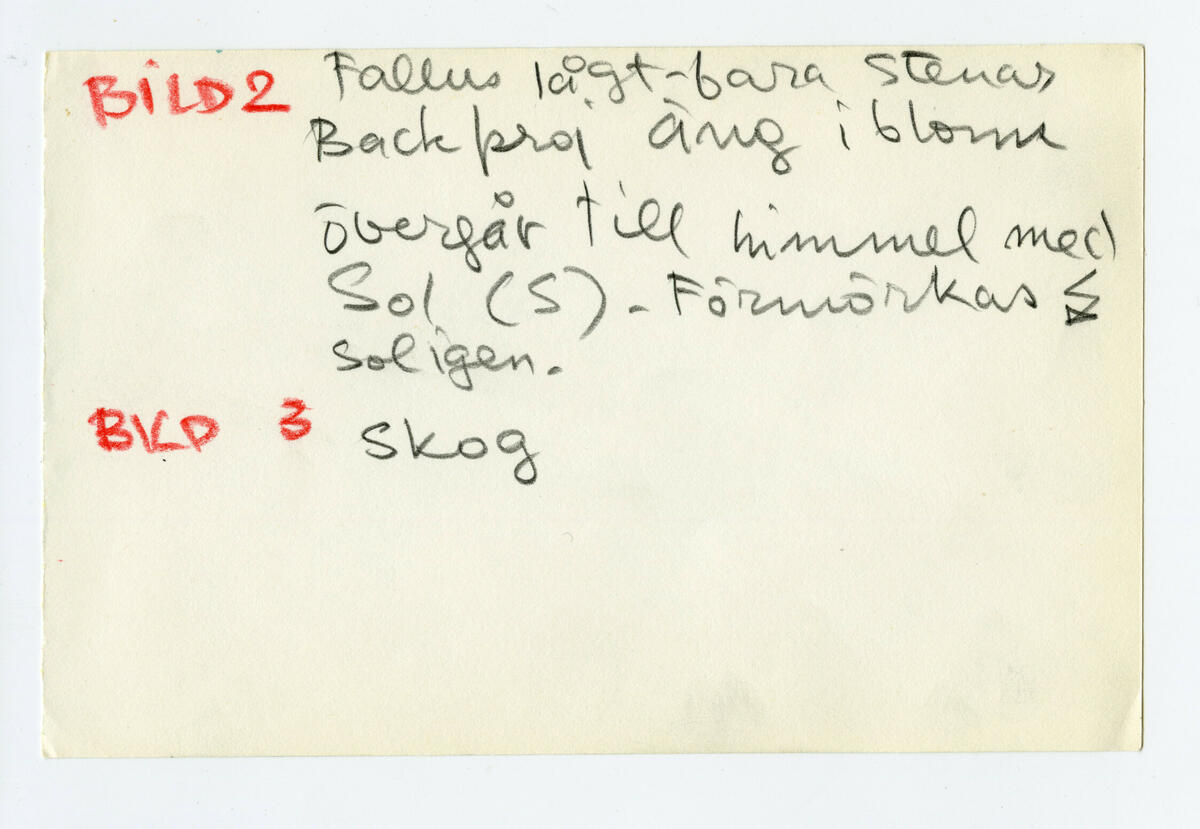 BILD 2 Fallus lågt-bara stenar
Backproj äng i blom
övergår till himmel med
Sol (S). Förmörkas
sol igen.
BILD 3 Skog